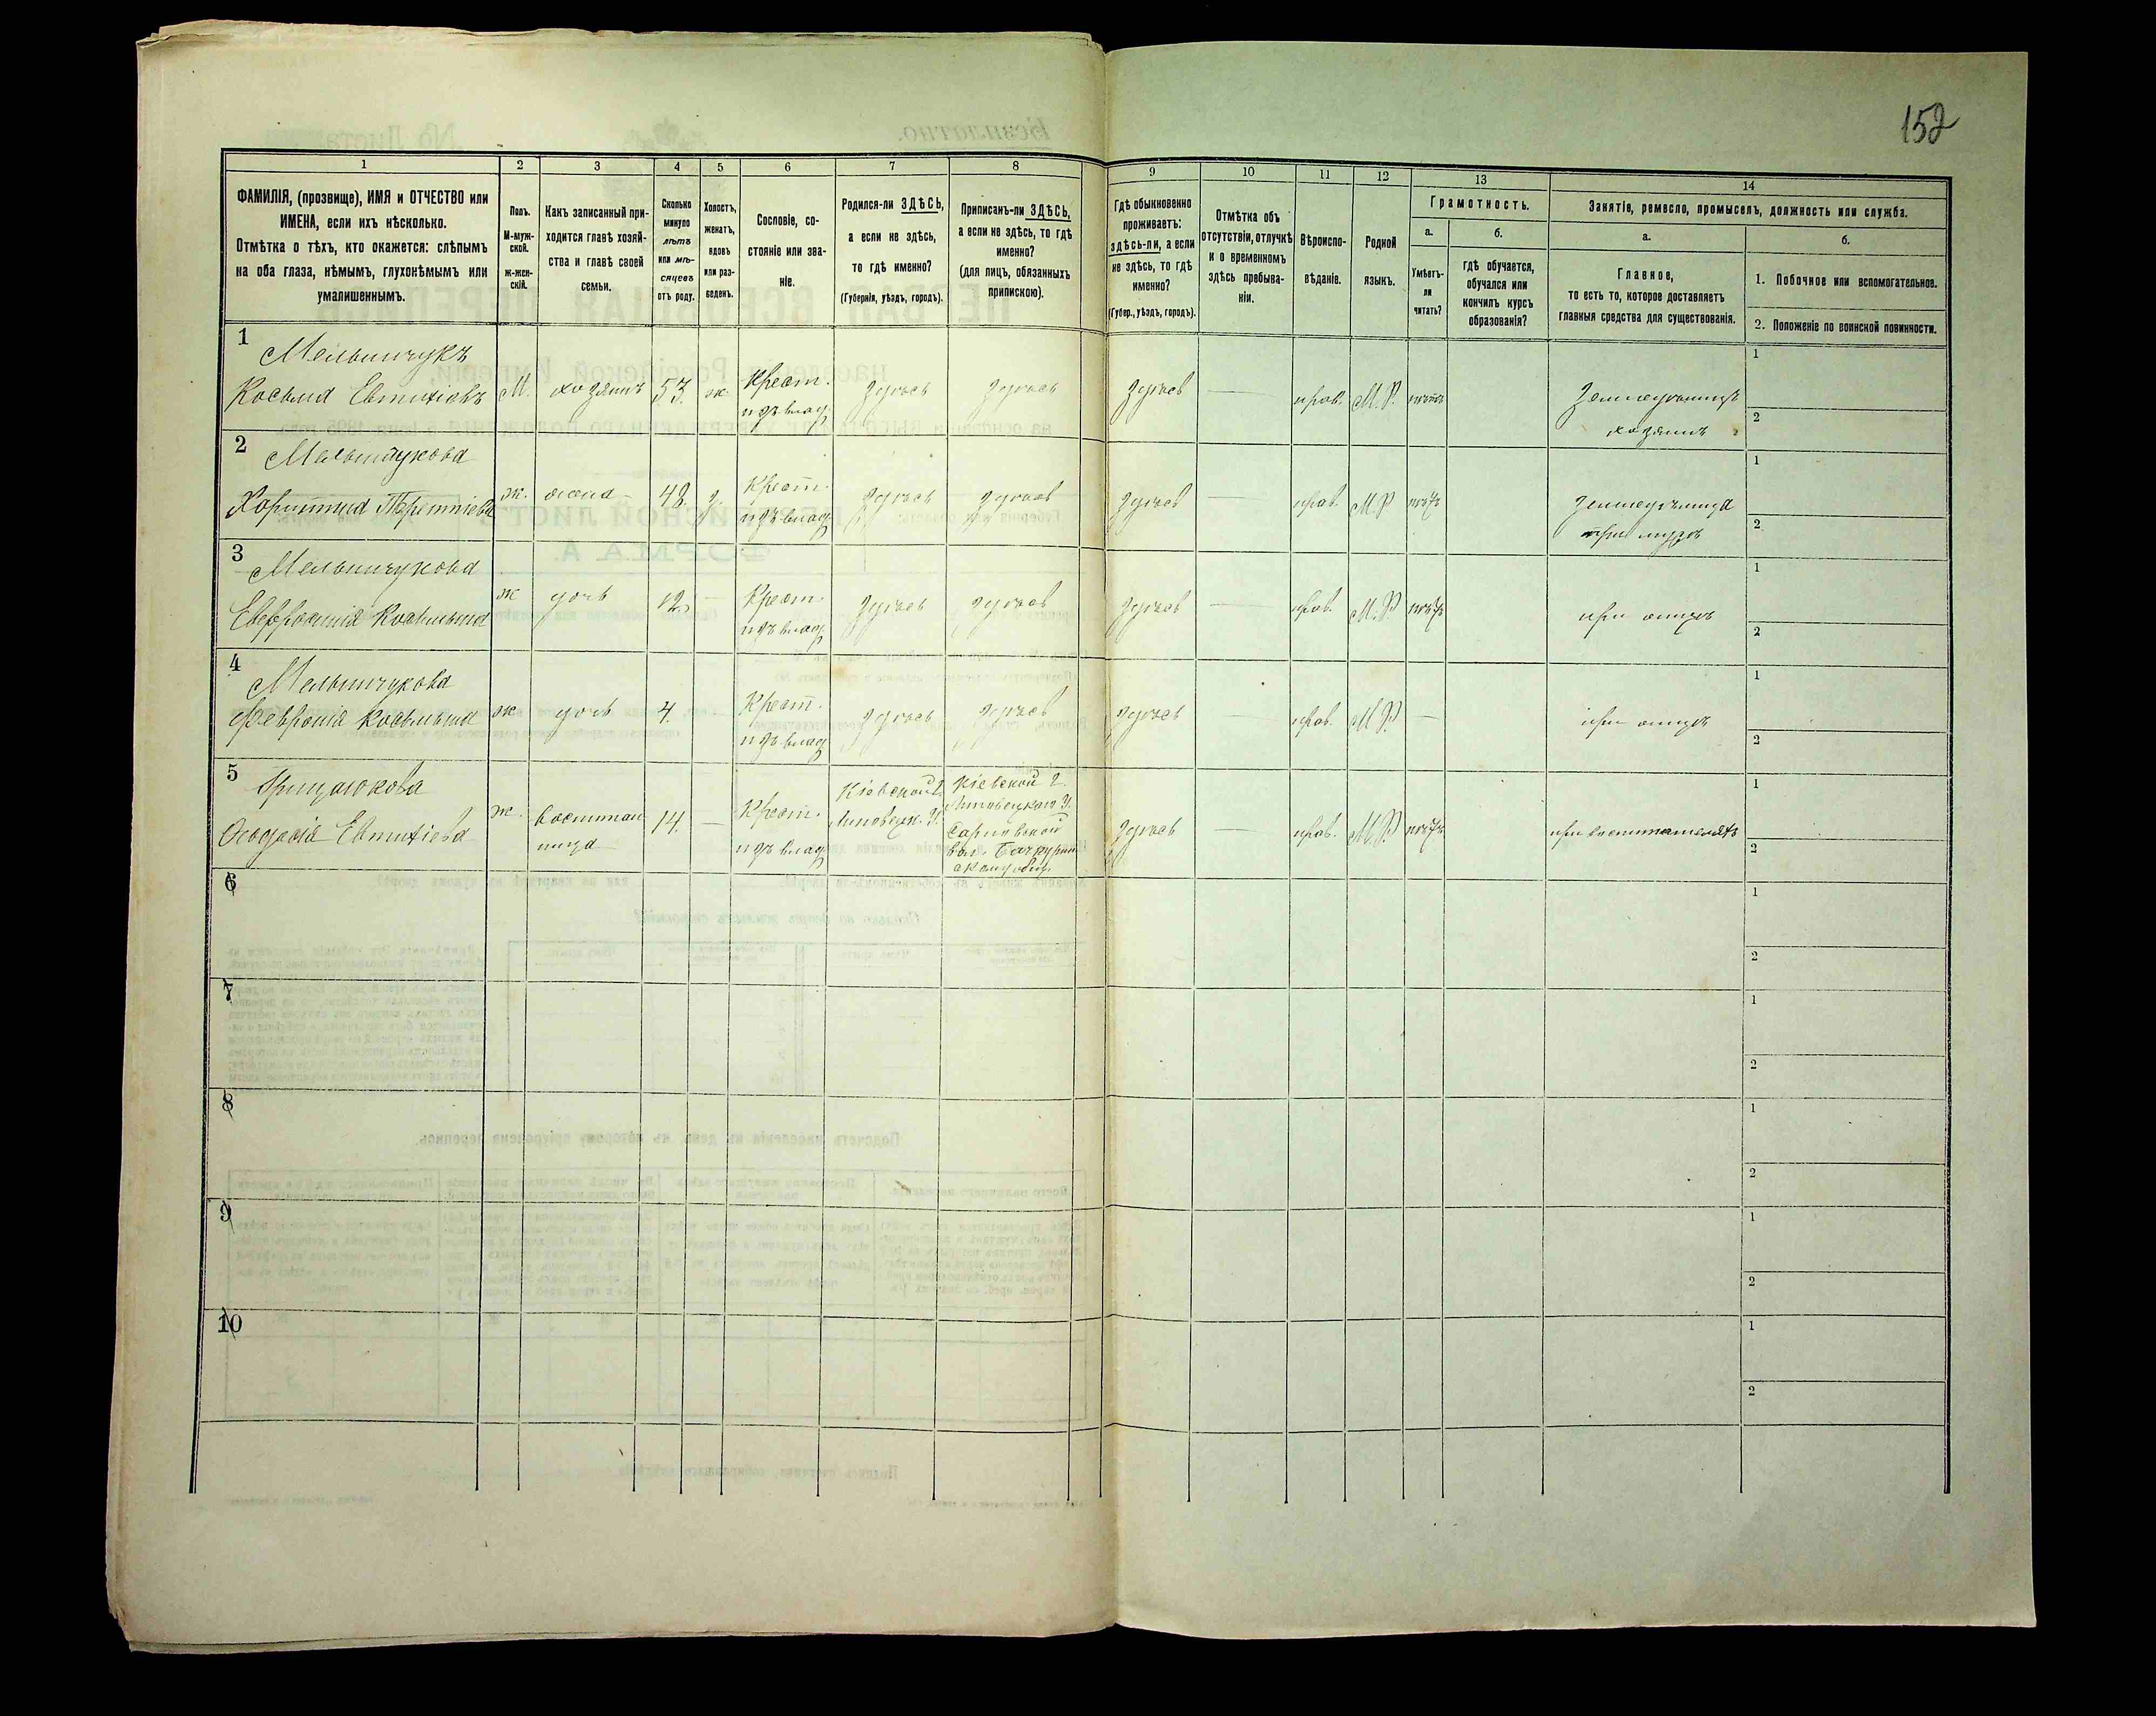 152
1
2
3
4
5
6
7
8
9
10
11
12
13
14
ФАМИЛІЯ, (прозвище), ИМЯ и ОТЧЕСТВО или
ИМЕНА, если ихъ нѣсколько.
Отмѣтка о тѣхъ, кто окажется: слѣпымъ
на оба глаза, нѣмымъ, глухонѣмымъ или
умалишеннымъ.
Полъ.
М-муж-
ской.
ж-жен-
скій.
Какъ записанный при-
ходится главѣ хозяй-
ства и главѣ своей
семьи.
Сколько
минуло
лѣтъ
или мѣ-
сяцевъ
отъ роду.
Холостъ,
женатъ,
вдовъ
или раз-
веденъ.
Сословіе, со-
стояніе или зва-
ніе.
Родился-ли ЗДѢСЬ,
а если не здѣсь,
то гдѣ именно?
(Губернія, уѣздъ, городъ).
Приписанъ-ли ЗДѢСЬ,
а если не здѣсь, то гдѣ
именно?
(для лицъ, обязанныхъ
припискою).
Гдѣ обыкновенно
проживаетъ:
здѣсь-ли, а если
не здѣсь, то гдѣ
именно?
(Губер., уѣздъ, городъ).
Отмѣтка объ
отсутствіи, отлучкѣ
и о временномъ
здѣсь пребыва-
ніи.
Вѣроиспо-
вѣданіе.
Родной
языкъ.
Грамотность.
а.
Умѣетъ-
ли
читать?
б.
гдѣ обучается,
обучался или
кончилъ курсъ
образованія?
Занятіе, ремесло, промыселъ, должность или служба.
а.
Главное,
то есть то, которое доставляетъ
главныя средства для существованія.
б.
1. Побочное или вспомогательное.
2. Положеніе по воинской повинности.
1
Мельничукъ
Косьма Евтихіевъ
М.
хозяинъ
53.
ж.
Крест.
изъ влад.
здѣсь
здѣсь
здѣсь
прав.
М.Р.
нѣтъ
Земледѣлецъ
хозяинъ
1
2
2
Мельничукова
Харитина Терентіева
ж.
жена
48.
з.
Крест.
изъ влад.
здѣсь
здѣсь
здѣсь
прав.
М.Р.
нѣтъ
Земледѣлица
при мужѣ
1
2
3
Мельничукова
Евфросинія Косьмина
ж
дочь
12.
Крест.
изъ влад.
здѣсь
здѣсь
здѣсь
прав.
М.Р.
нѣтъ
при отцѣ
1
2
4
Мельничукова
Февронія Косьмина
ж
дочь
4.
Крест.
изъ влад.
здѣсь
здѣсь
здѣсь
прав.
М.Р.
при отцѣ
1
2
5
Грицаюкова
Ѳеодосія Евтихіева
ж.
воспитан
ница
14.
Крест.
изъ влад.
Кіевской г.
Липовецк. у.
Кіевской г.
Липовецкаго у.
вол.
здѣсь
прав.
М.Р.
нѣтъ
при воспитателѣ
1
2
6
1
2
7
1
2
8
1
2
9
1
2
10
1
2